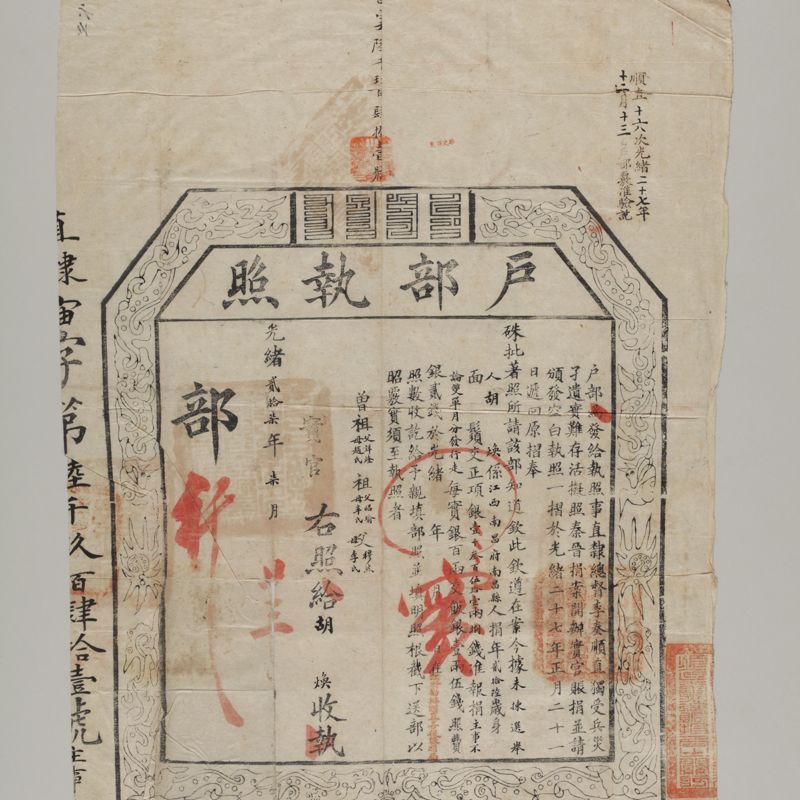 順直十六次光緒二十七年
十二月十三
部覈准驗訖
戶部執照
戶部為發給執照事直隸總督李奏順直獨受兵災
孑遺實難存活擬照秦晉捐案開辦實官賑捐並請
頒發空白執照一摺於光緒二十七年正月二十一
日遞回原摺奉
硃批著照所請該部知道欽此欽遵在案今據未揀選舉
人胡煥係江西南昌府南昌縣人捐年貳拾陸歲身
面鬚
交正項銀
准報捐主事不
論雙單月分發行走每實銀百兩交飯銀壹兩伍錢照費
銀貳錢於光緒年月日在
照數收訖給予親填部照並填明照根截下送部以
昭覈實須至執照者
曾祖
祖
父
母李氏
實官
右照給胡煥收執
光緒貳拾柒年柒月
部
直隸寅字第陸千久百肆拾壹號
主事